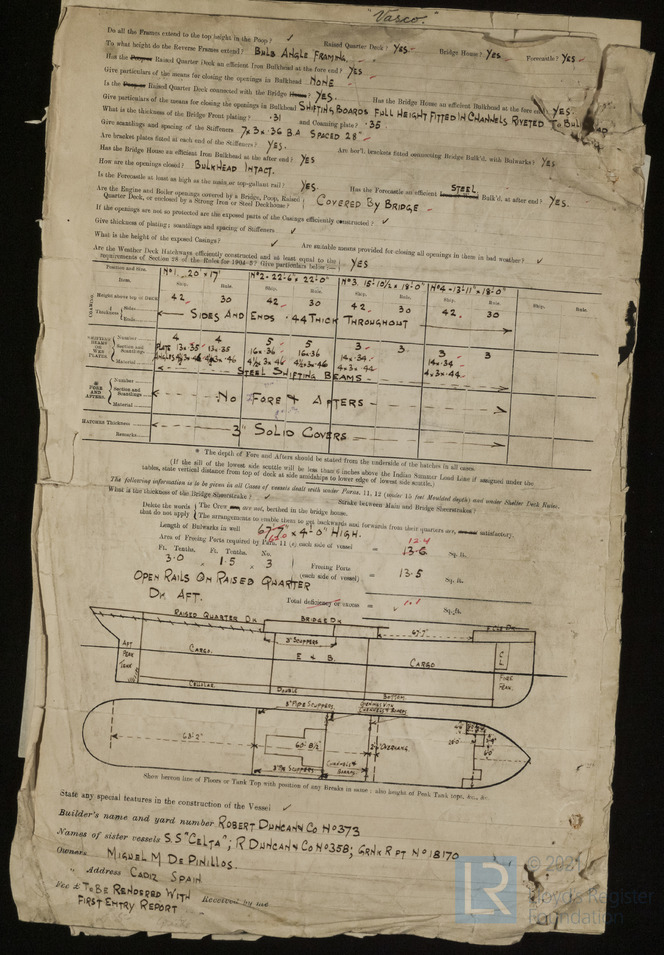 "Vasco."
Do all the Frames extend to the top height in the Poop? ✓ Raised Quarter Deck? YES. Bridge House? YES Forecastle? YES
To what height do the Reverse Frames extend? BULB ANGLE FRAMING
Has the Raised Quarter Deck an efficient Iron Bulkhead at the fore end? YES
Give particulars of the means for closing the openings in Bulkhead NONE
Is the Raised Quarter Deck connected with the Bridge House? YES. Has the Bridge House an efficient Bulkhead at the fore end? YES.
Give particulars of the means for closing the openings in Bulkhead SHIFTING BOARDS FULL HEIGHT FITTED IN CHANNELS RIVETED TO
What is the thickness of the Bridge Front plating? .31 and Coaming plate? .35
Give scantlings and spacing of the Stiffeners 7x3x.36 B.A SPACED 28"
Are bracket plates fitted at each end of the Stiffeners? YES. Are hor'l. brackets fitted connecting Bridge Bulk'd. with Bulwarks? YES
Has the Bridge House an efficient Iron Bulkhead at the after end? YES
How are the openings closed? BULKHEAD INTACT.
Is the Forecastle at least as high as the main or top-gallant rail? YES. Has the Forecastle an efficient STEEL Bulk'd. at after end? YES.
Are the Engine and Boiler openings covered by a Bridge, Poop, Raised
Quarter Deck, or enclosed by a Strong Iron or Steel Deckhouse? COVERED BY BRIDGE
If the openings are not so protected are the exposed parts of the Casings efficiently constructed? ✓
Give thickness of plating; scantlings and spacing of Stiffeners ✓
What is the height of the exposed Casings? ✓ Are suitable means provided for closing all openings in them in bad weather? ✓
Are the Weather Deck Hatchways efficiently constructed and at least equal to the
requirements of Section 28 of the Rules for 1904-5? Give particulars below YES
Position and Size. Nº1. 20'x17' Nº2-22'-6"x22'-0" Nº3. 15'-10½"x18'-0" Nº4-13'-11"x18'-0"
Item. Ship. Rule. Ship. Rule. Ship. Rule. Ship. Rule. Ship. Rule.
COAMING Height above top of DECK 42 30 42 30 42 30 42 30
Thickness Sides Ends SIDES AND ENDS .44 THICK THROUGHOUT
SHIFTING BEAMS OR WEB PLATES Number 4 4 5 5 3 3 3 3
Section and Scantlings PLATE 13x.35 13x.35 16x.36 16x.36 14x.34 14x.34
Material ANGLES 4½x3x.46 4½x3x.46 4x3x.44 4x3x.44
STEEL SHIFTING BEAMS
* FORE AND AFTERS Number
Section and Scantlings NO FORE & AFTERS
Material
HATCHES Thickness 3" SOLID COVERS
Remarks
* The depth of Fore and Afters should be stated from the underside of the hatches in all cases.
(If the sill of the lowest side scuttle will be less than 6 inches above the Indian Summer Load Line if assigned under the
tables, state vertical distance from top of deck at side amidships to lower edge of lowest side scuttle.)
The following information is to be given in all Cases of vessels dealt with under Paras. 11, 12 (under 15 feet Moulded depth) and under Shelter Deck Rules.
What is the thickness of the Bridge Sheerstrake? ✓ Strake between Main and Bridge Sheerstrakes?
Delete the words that do not apply The Crew are not, berthed in the bridge house.
The arrangements to enable them to get backwards and forwards from their quarters are, satisfactory.
Length of Bulwarks in well 67'-7" x 4'-0" HIGH.
Area of Freeing Ports required by Para. 11 (e) each side of vessel = 13.6 12.4 Sq. ft.
Ft. Tenths. Ft. Tenths. No.
3.0 x 1.5 x 3 Freeing Ports (each side of vessel) = 13.5 Sq. ft.
OPEN RAILS ON RAISED QUARTER
DK AFT.
Total deficiency or excess = 1.1 Sq. ft.
RAISED QUARTER DK BRIDGE DK 67'.7" F'CLE DK
3" SCUPPERS
AFT PEAK TANK CARGO. E & B. CARGO C L FORE PEAK
CELLULAR DOUBLE BOTTOM
3" PIPE SCUPPERS
68'-2" 60'-8½"
Shew bottom line of Floors or Tank Top with position of any Breaks in same, also height of Peak Tank tops, &c., &c.
State any special features in the construction of the Vessel ✓
Builder's name and yard number ROBERT DUNCAN & CO Nº373
Names of sister vessels S.S "CELTA"; R DUNCAN & CO Nº358; GRNK RPT Nº18170
Owners MIGUEL M DE PINILLOS
" Address CADIZ SPAIN
Fee £ TO BE RENDERED WITH Received by me
FIRST ENTRY REPORT
LR
© 2021
Lloyd's Register
Foundation